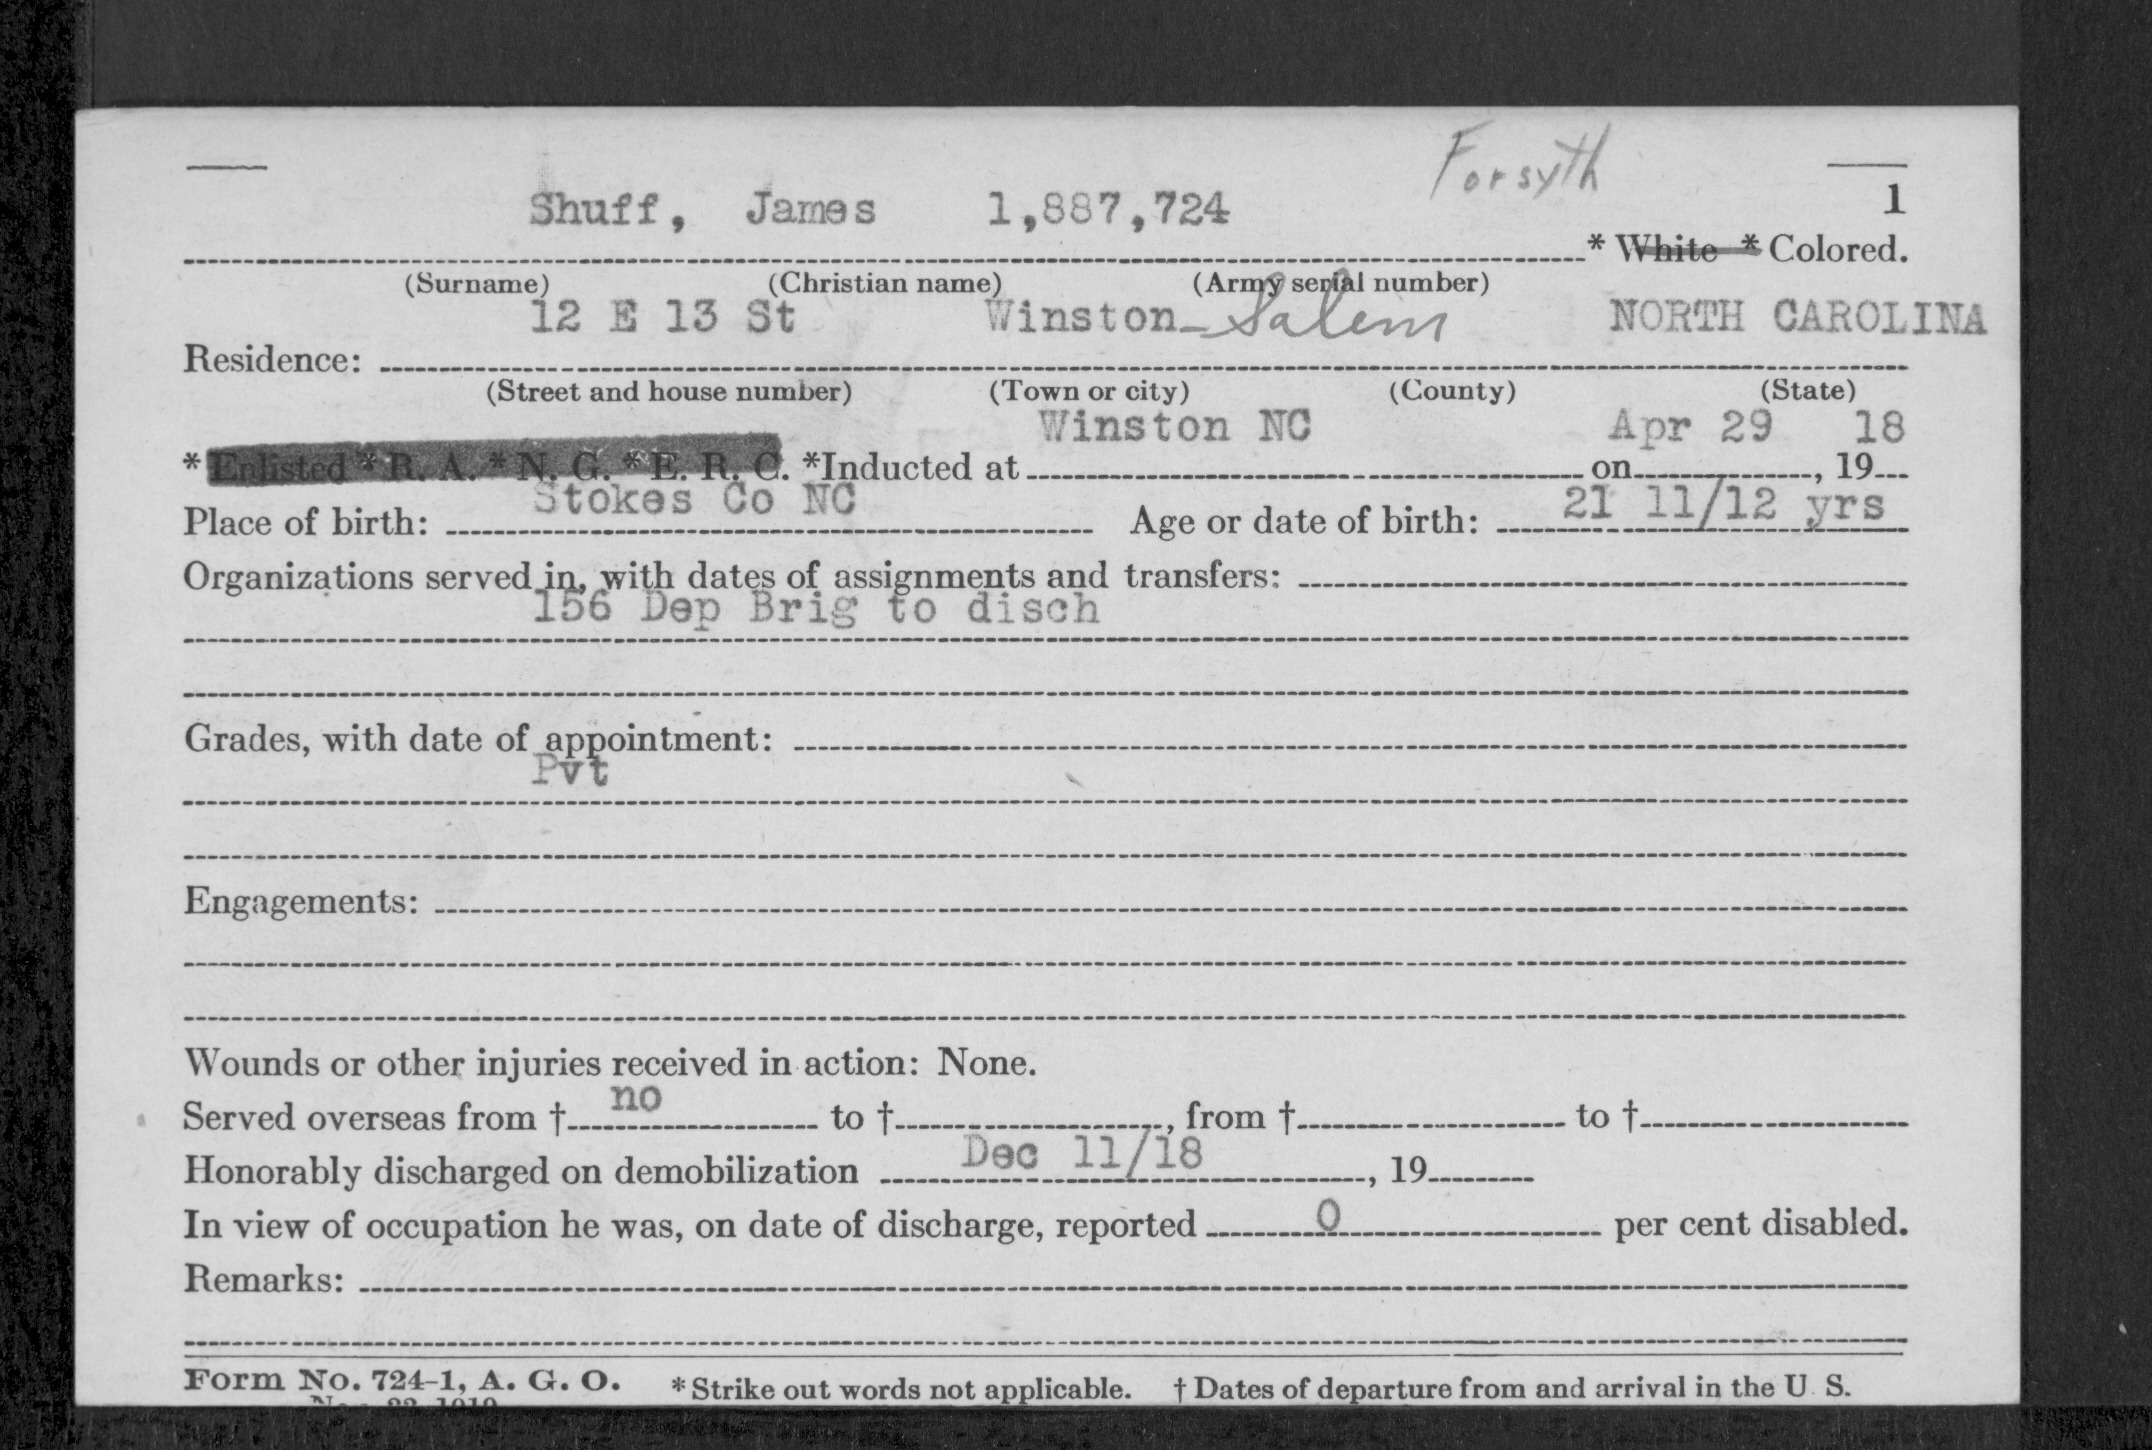 Forsyth
Shuff, James 1,887,724 1
* White * Colored.
(Surname) (Christian name) (Army serial number)
12 E 13 St Winston-Salem NORTH CAROLINA
Residence:
(Street and house number) (Town or city) (County) (State)
Winston NC Apr 29 18
* Enlisted * R. A. * N. G. * E. R. C. *Inducted at on , 19
Stokes Co NC 21 11/12 yrs
Place of birth: Age or date of birth:
Organizations served in, with dates of assignments and transfers:
156 Dep Brig to disch
Grades, with date of appointment:
Pvt
Engagements:
Wounds or other injuries received in action: None.
Served overseas from † no to † , from † to †
Honorably discharged on demobilization Dec 11/18 , 19
In view of occupation he was, on date of discharge, reported 0 per cent disabled.
Remarks:
Form No. 724-1, A. G. O. * Strike out words not applicable. † Dates of departure from and arrival in the U. S.